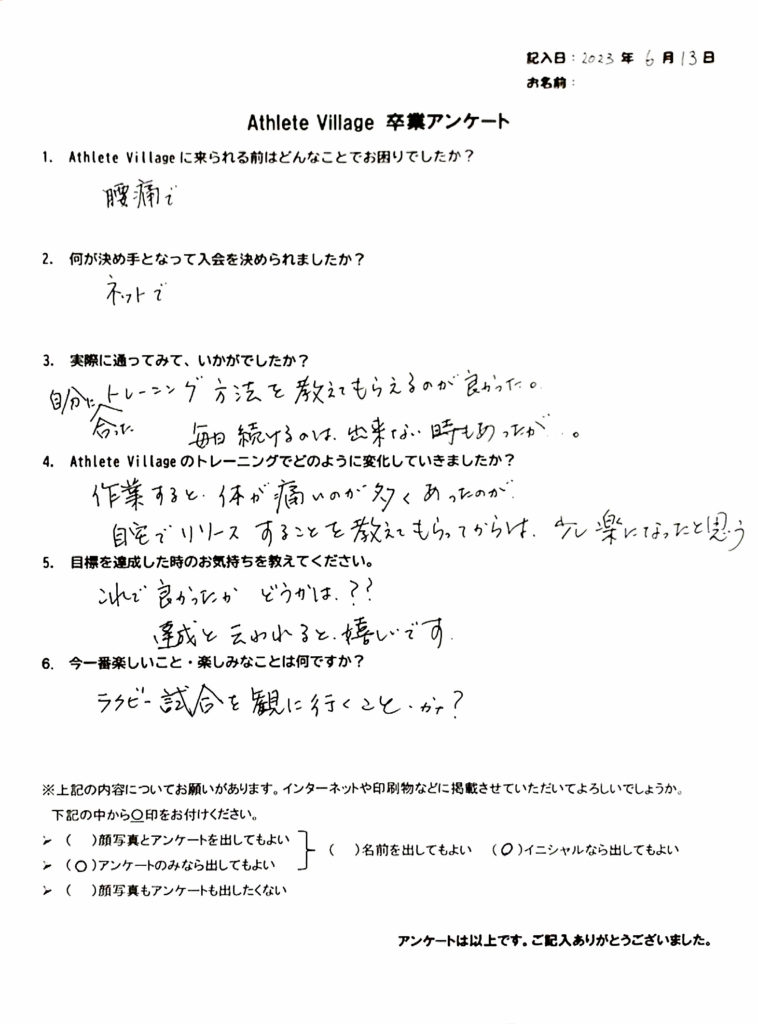 記入日：2023年 6月13日
お名前：
Athlete Village 卒業アンケート
1. Athlete Villageに来られる前はどんなことでお困りでしたか？
腰痛で
2. 何が決め手となって入会を決められましたか？
ネットで
3. 実際に通ってみて、いかがでしたか？
自分に合ったトレーニング方法を教えてもらえるのが良かった。
毎日続けるのは、出来ない時もあったが…。
4. Athlete Villageのトレーニングでどのように変化していきましたか？
作業すると、体が痛いのが多くあったのが、
自宅でリリースすることを教えてもらってからは、少し楽になったと思う
5. 目標を達成した時のお気持ちを教えてください。
これで良かったか どうかは、??
達成と云われると、嬉しいです.
6. 今一番楽しいこと・楽しみなことは何ですか？
ラグビー試合を観に行くこと、かナ?
※上記の内容についてお願いがあります。インターネットや印刷物などに掲載させていただいてよろしいでしょうか。
下記の中から○印をお付けください。
➢ （ ）顔写真とアンケートを出してもよい
➢ （○）アンケートのみなら出してもよい
（ ）名前を出してもよい （○）イニシャルなら出してもよい
➢ （ ）顔写真もアンケートも出したくない
アンケートは以上です。ご記入ありがとうございました。